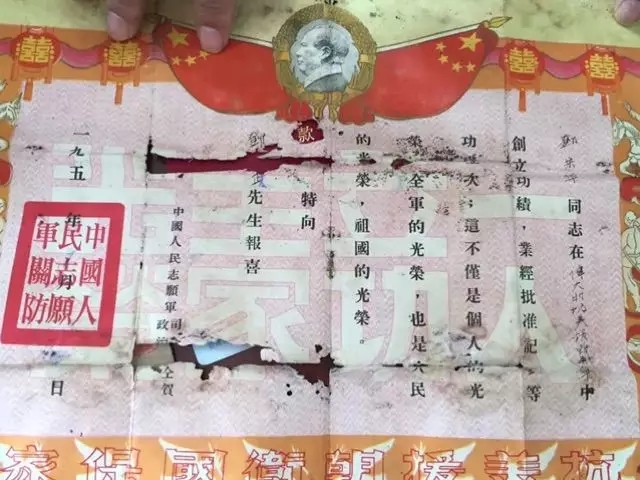 囍 囍 囍 囍
同志在偉大的抗美援朝 中
創立功績，業經批准記 等
功 次；這不僅是個人的光
榮 全軍的光榮，也是人民
的光榮，祖國的光榮。
款
特向
先生報喜
中國人民志願軍司 政治 仝賀
一九五 年 日
中國人
民志願
軍關防
抗美援朝衛國保家